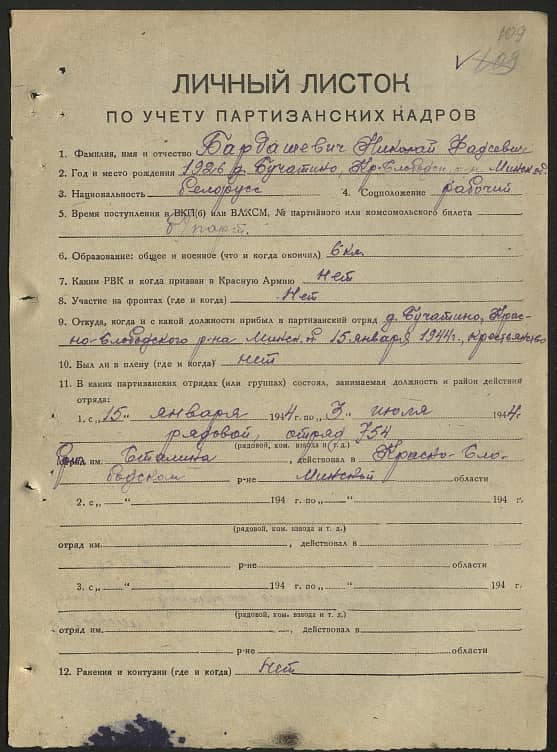 109
ЛИЧНЫЙ ЛИСТОК
ПО УЧЕТУ ПАРТИЗАНСКИХ КАДРОВ
1. Фамилия, имя и отчество Бардашевич Николай Фадеевич
2. Год и место рождения 1926 д. Бучатино, Кр-Слободск. р-н Минск. об.
3. Национальность белорусс 4. Соцположение рабочий
5. Время поступления в ВКП(б) или ВЛКСМ, № партийного или комсомольского билета
б/парт.
6. Образование: общее и военное (что и когда окончил) 6 кл.
7. Каким РВК и когда призван в Красную Армию Нет
8. Участие на фронтах (где и когда) Нет
9. Откуда, когда и с какой должности прибыл в партизанский отряд д. Бучатино, Крас-
но-Слободского р-на Минск. 15 января 1944 г., крестьянство
10. Был ли в плену (где и когда) нет
11. В каких партизанских отрядах (или группах) состоял, занимаемая должность и район действия
отряда:
1. с „15" января 1944 г. по „3" июля 1944 г.
рядовой, отряд 754
(рядовой, ком. взвода и т. д.)
им. Сталина, действовал в Красно-Сло-
бодском р-не Минской области
2. с „ " 194 г. по „ " 194 г.
(рядовой, ком. взвода и т. д.)
отряд им. , действовал в
р-не области
3. с „ " 194 г. по „ " 194 г.
(рядовой, ком. взвода и т. д.)
отряд им. , действовал в
р-не области
12. Ранения и контузии (где и когда) Нет